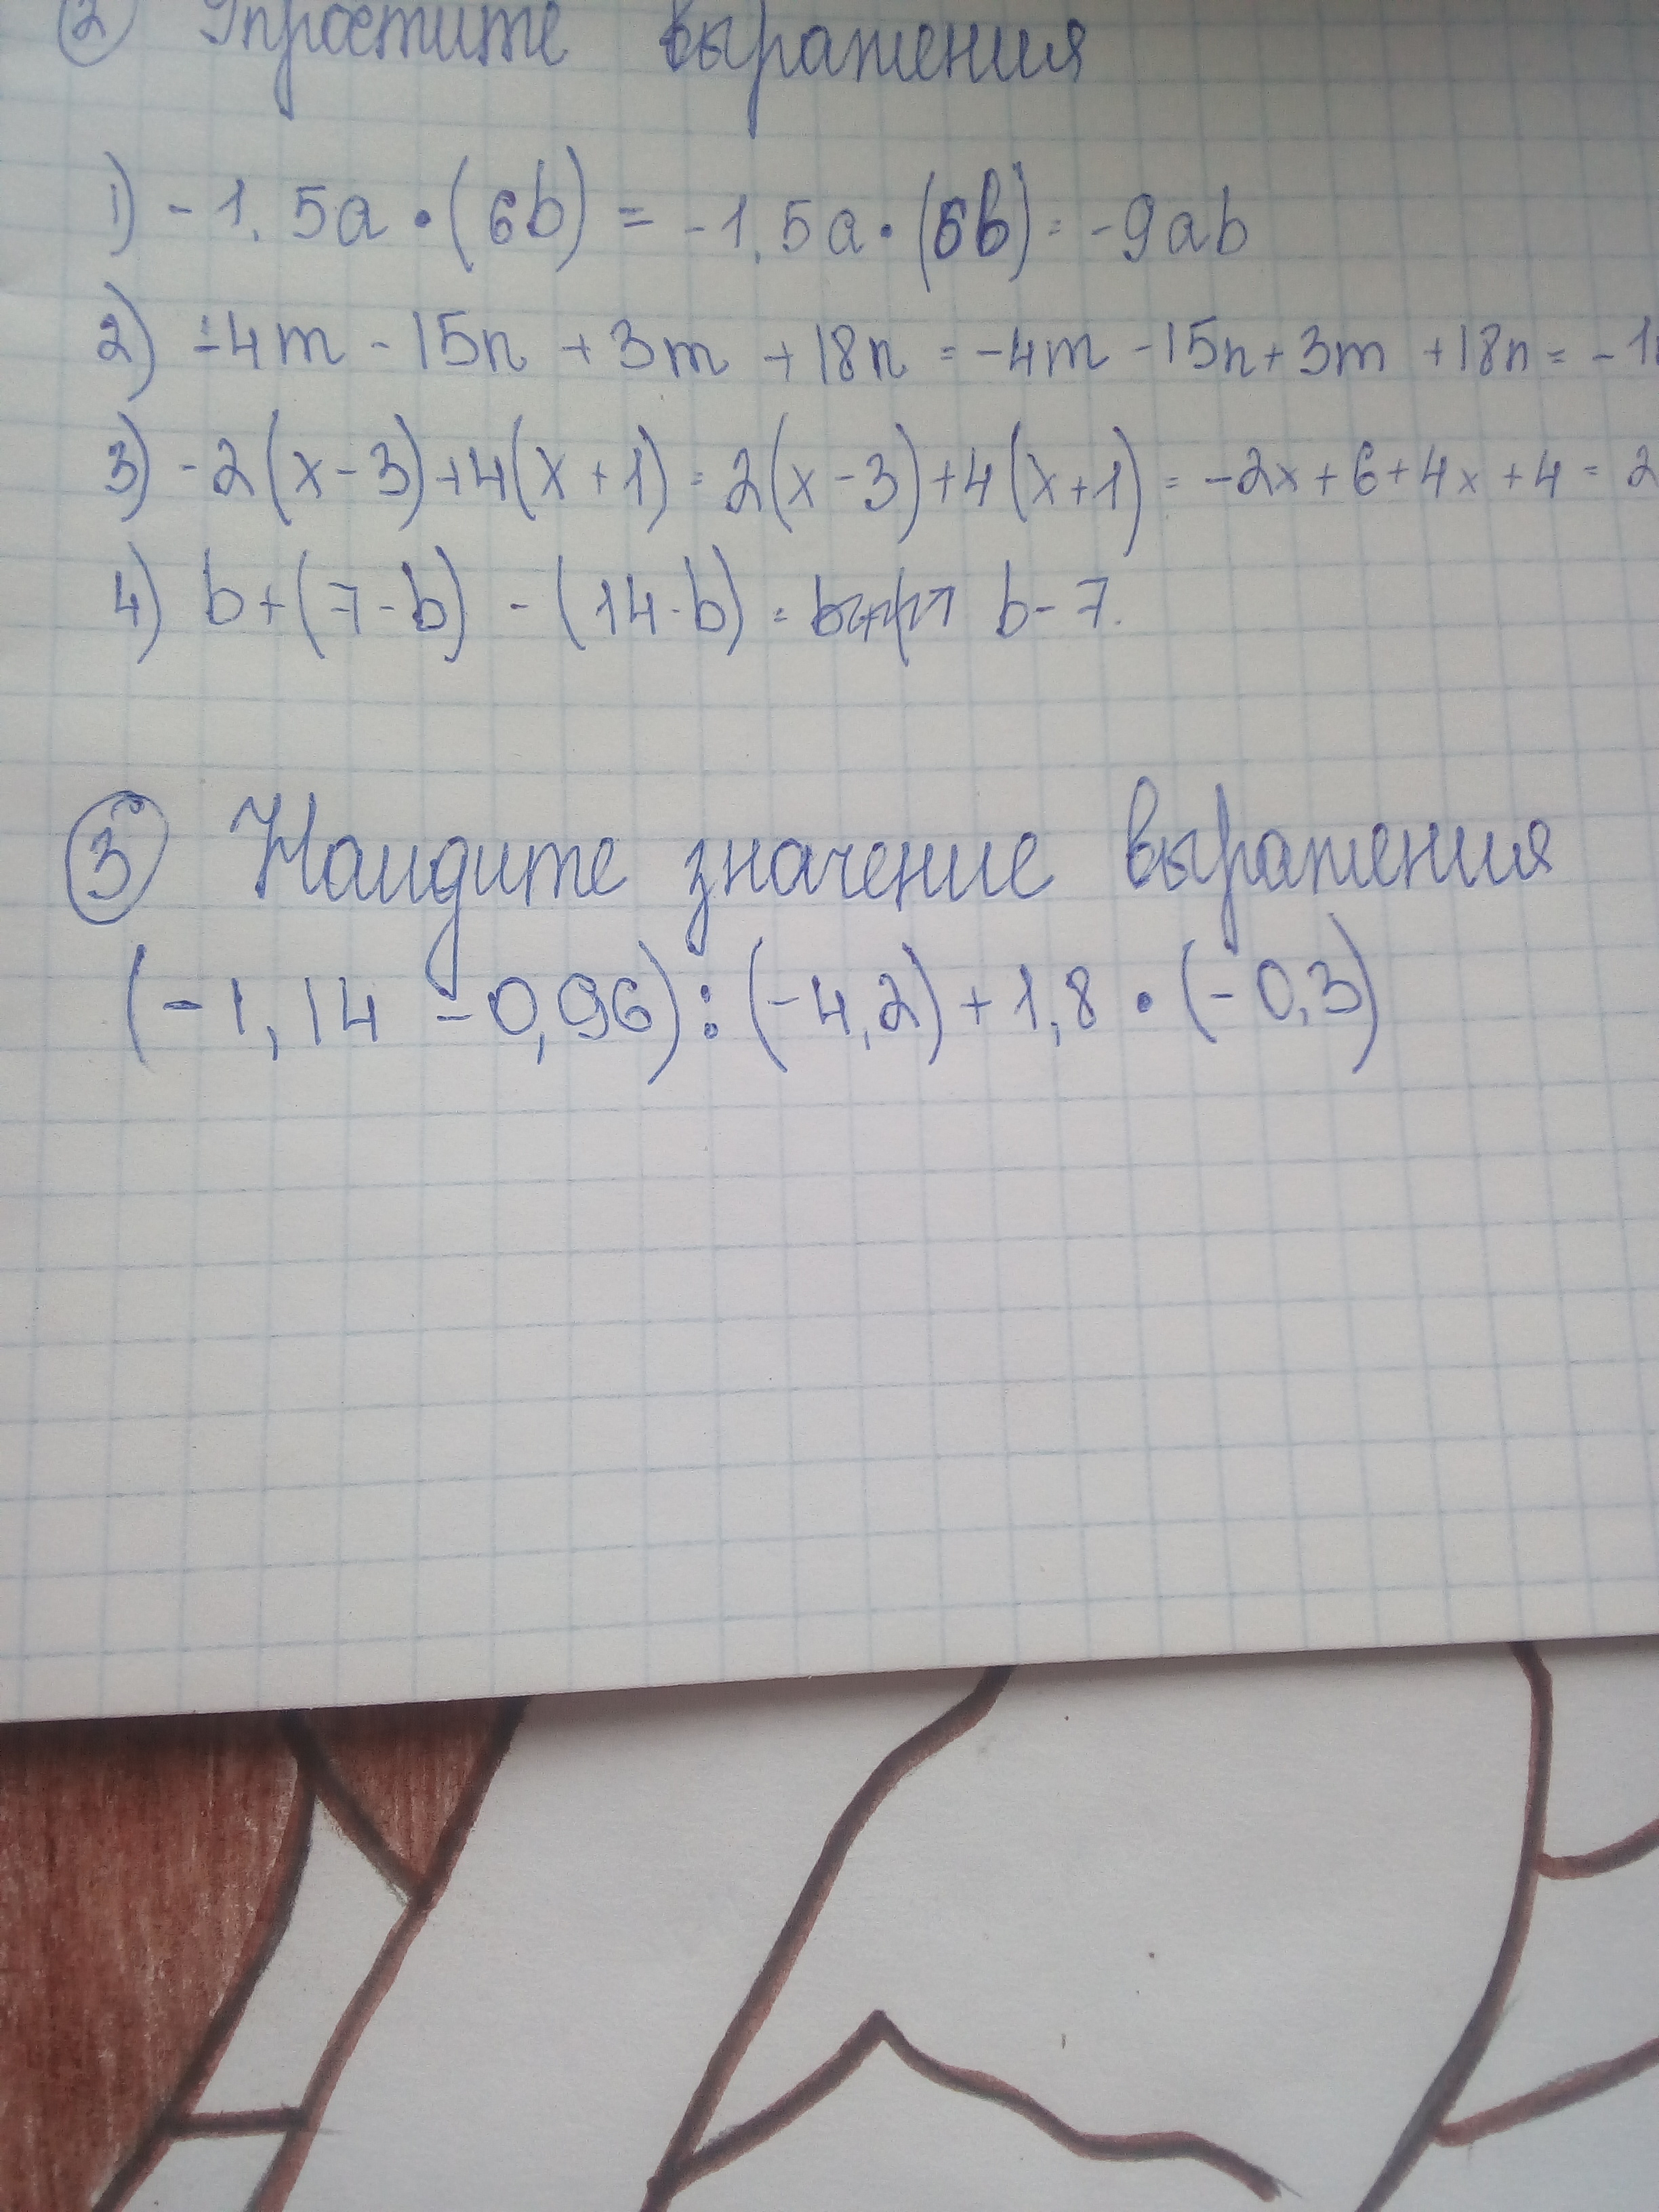 ② Упростите выражения
1) -1,5a · (6b) = -1,5a · (6b) = -9ab
2) -4m - 15n + 3m + 18n = -4m - 15n + 3m + 18n = -1
3) -2(x-3)+4(x+1) = 2(x-3)+4(x+1) = -2x+6+4x+4 = 2
4) b+(7-b) - (14-b) = b-7.
③ Найдите значение выражения
(-1,14 - 0,96) : (-4,2) + 1,8 · (-0,3)